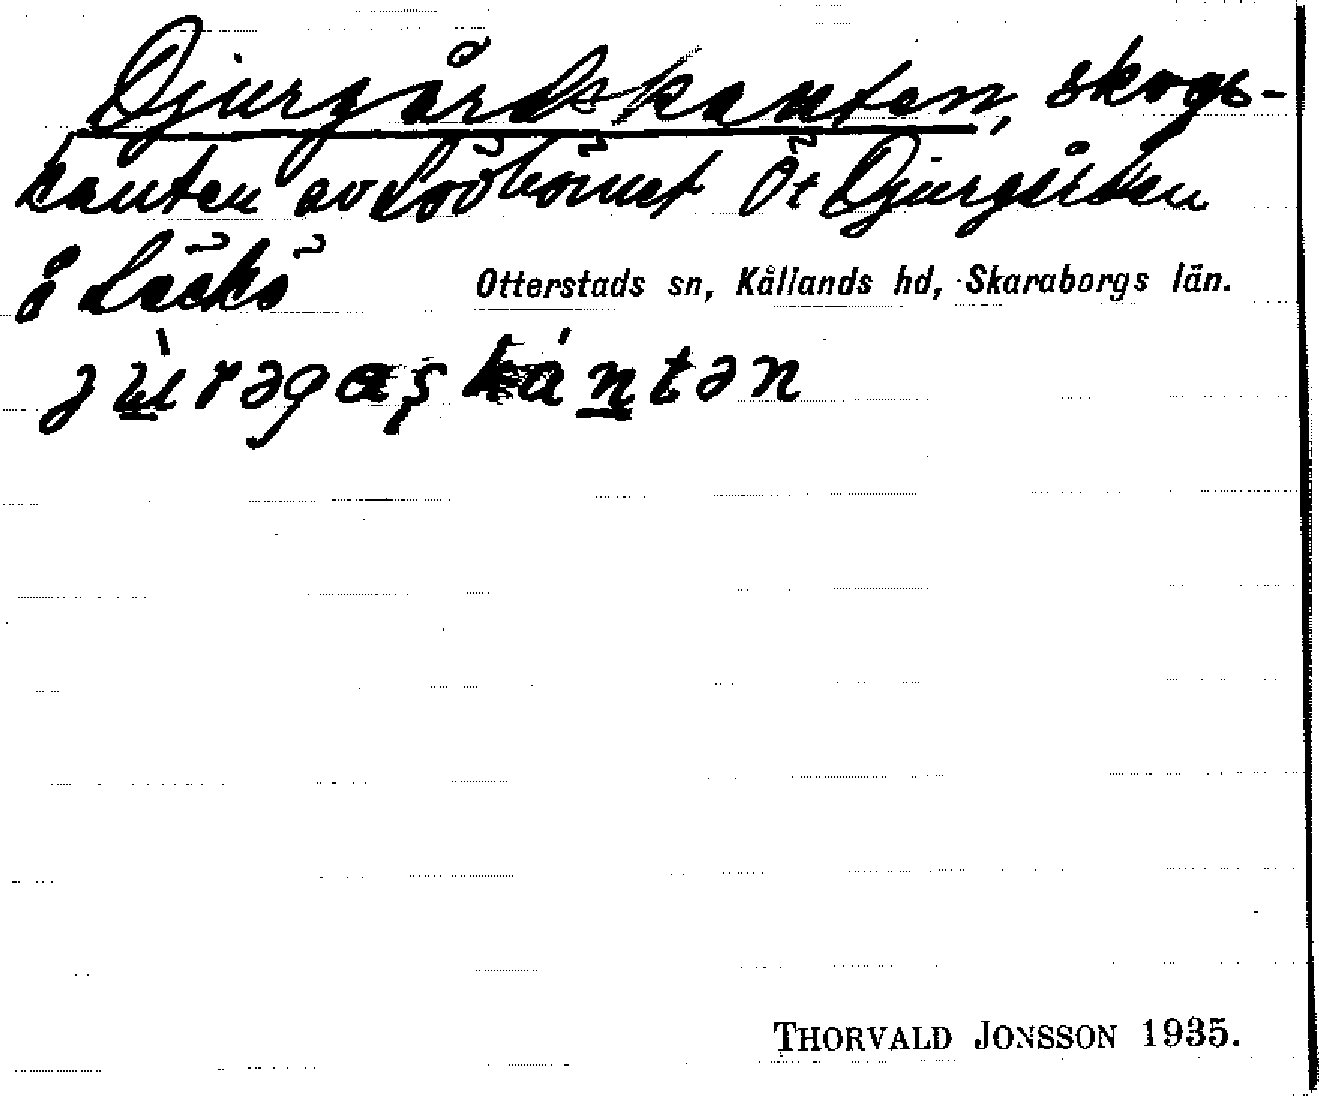 Djurgårdskanten, skogs-
kanten av Lövhörnet Öt Djurgården
å Läckö
Otterstads sn, Kållands hd, Skaraborgs län.
THORVALD JONSSON 1935.